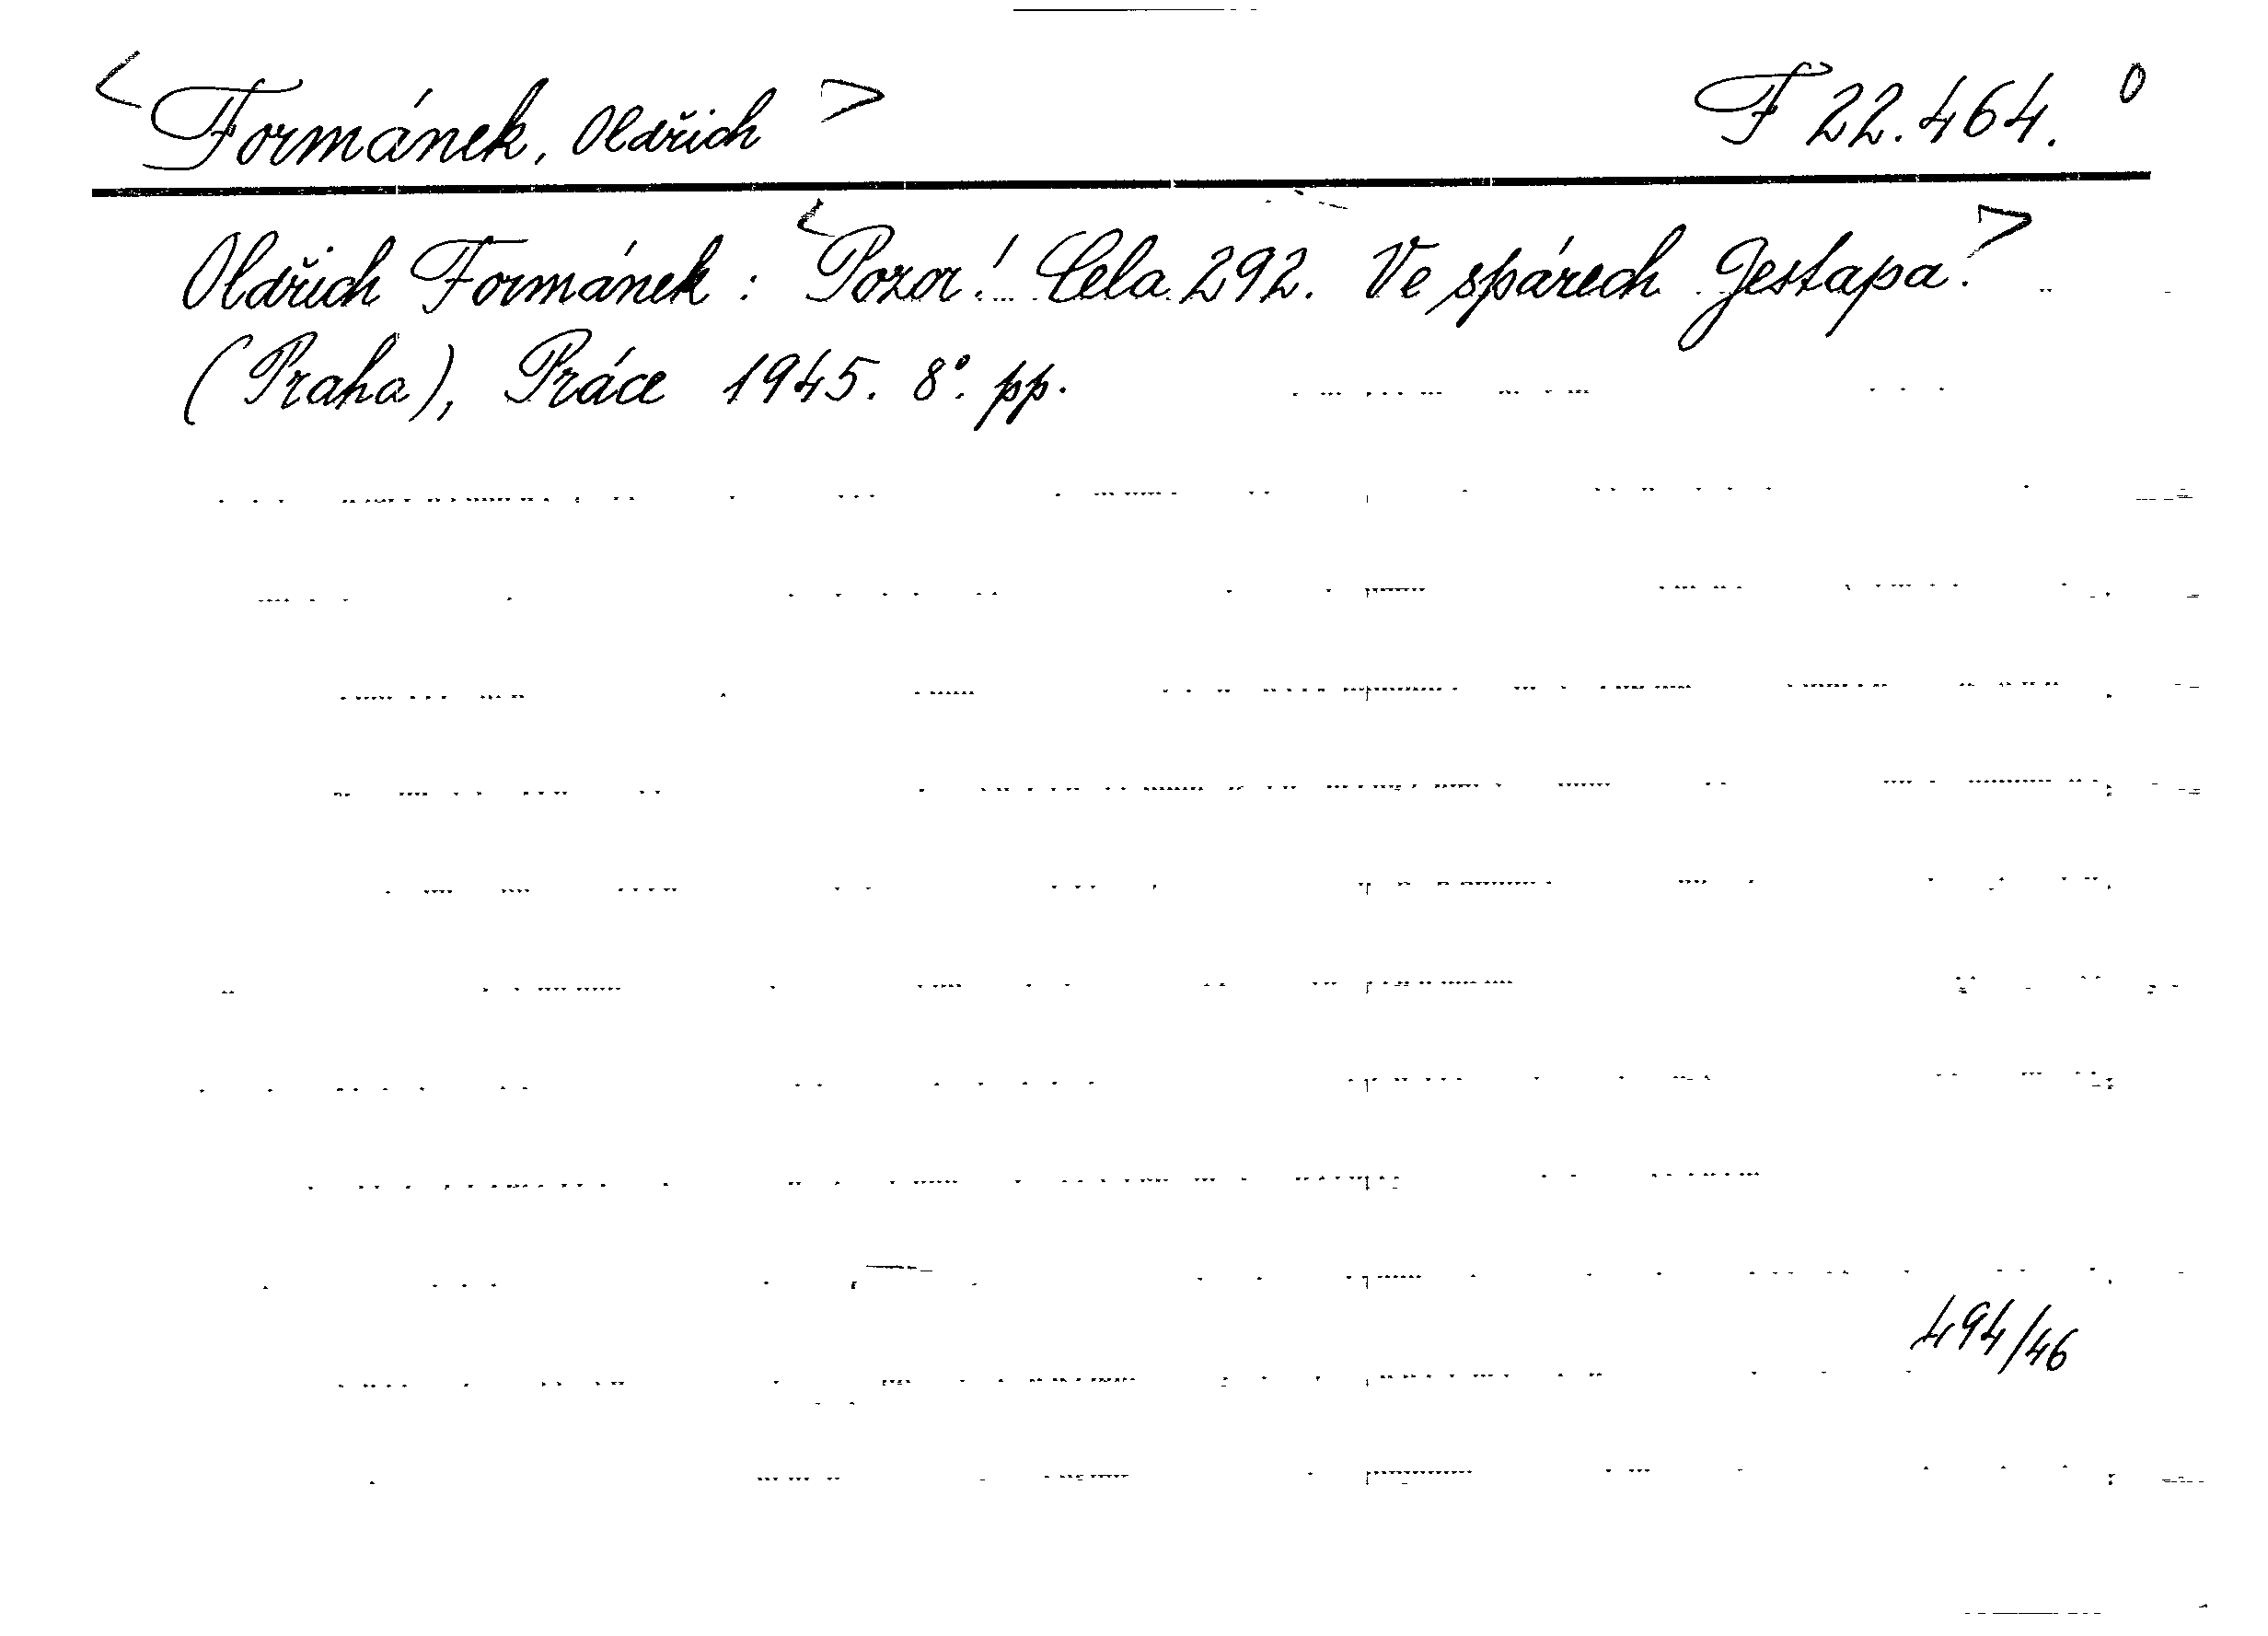 <Formánek, Oldřich> F 22.464. 0
Oldřich Formánek: <Pozor! Cela 292. Ve spárech Gestapa.>
(Praha), Práce 1945. 8°. pp.
494/46